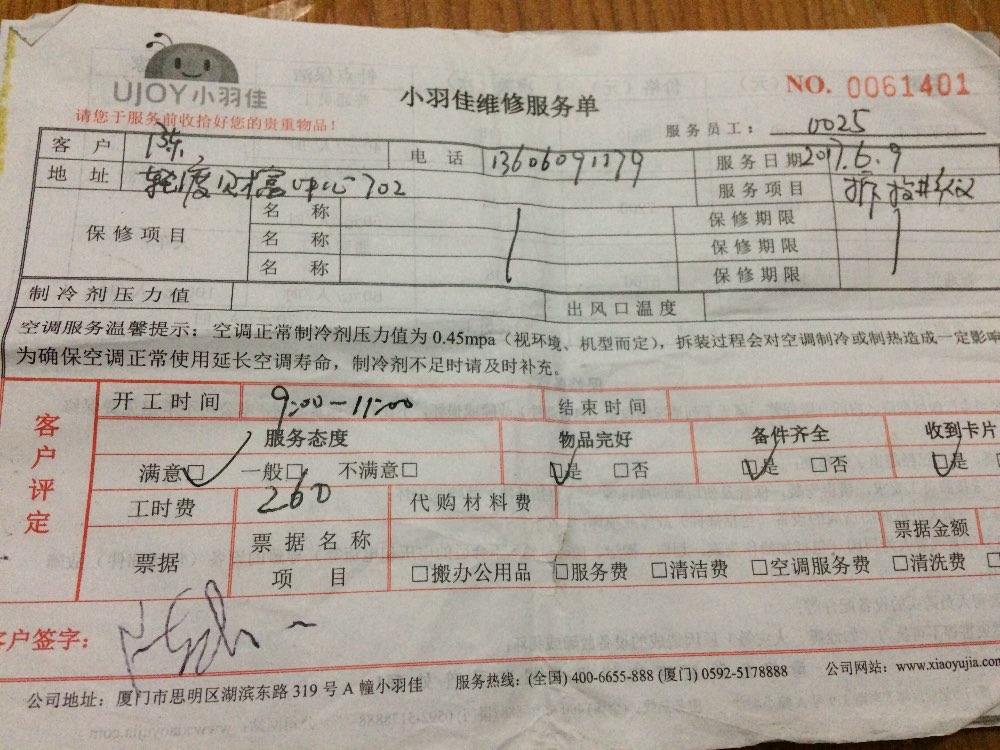 UJOY小羽佳
小羽佳维修服务单
NO. 0061401
请您于服务前收拾好您的贵重物品！
服务员工： 0025
客户 陈 电话 13606091179 服务日期 2017.6.9
地址 财富中心702 服务项目 拆
保修项目 名称 保修期限
名称 保修期限
名称 保修期限
制冷剂压力值 出风口温度
空调服务温馨提示：空调正常制冷剂压力值为 0.45mpa（视环境、机型而定），拆装过程会对空调制冷或制热造成一定影响
为确保空调正常使用延长空调寿命，制冷剂不足时请及时补充。
客户评定
开工时间 9:00-11:00 结束时间
服务态度 物品完好 备件齐全 收到卡片
满意□ 一般□ 不满意□ □是 □否 □是 □否 □是
工时费 260 代购材料费
票据 票据名称 票据金额
项目 □搬办公用品 □服务费 □清洁费 □空调服务费 □清洗费
客户签字：
公司地址：厦门市思明区湖滨东路 319 号 A 幢小羽佳 服务热线：(全国) 400-6655-888 (厦门) 0592-5178888 公司网站：www.xiaoyujia.com